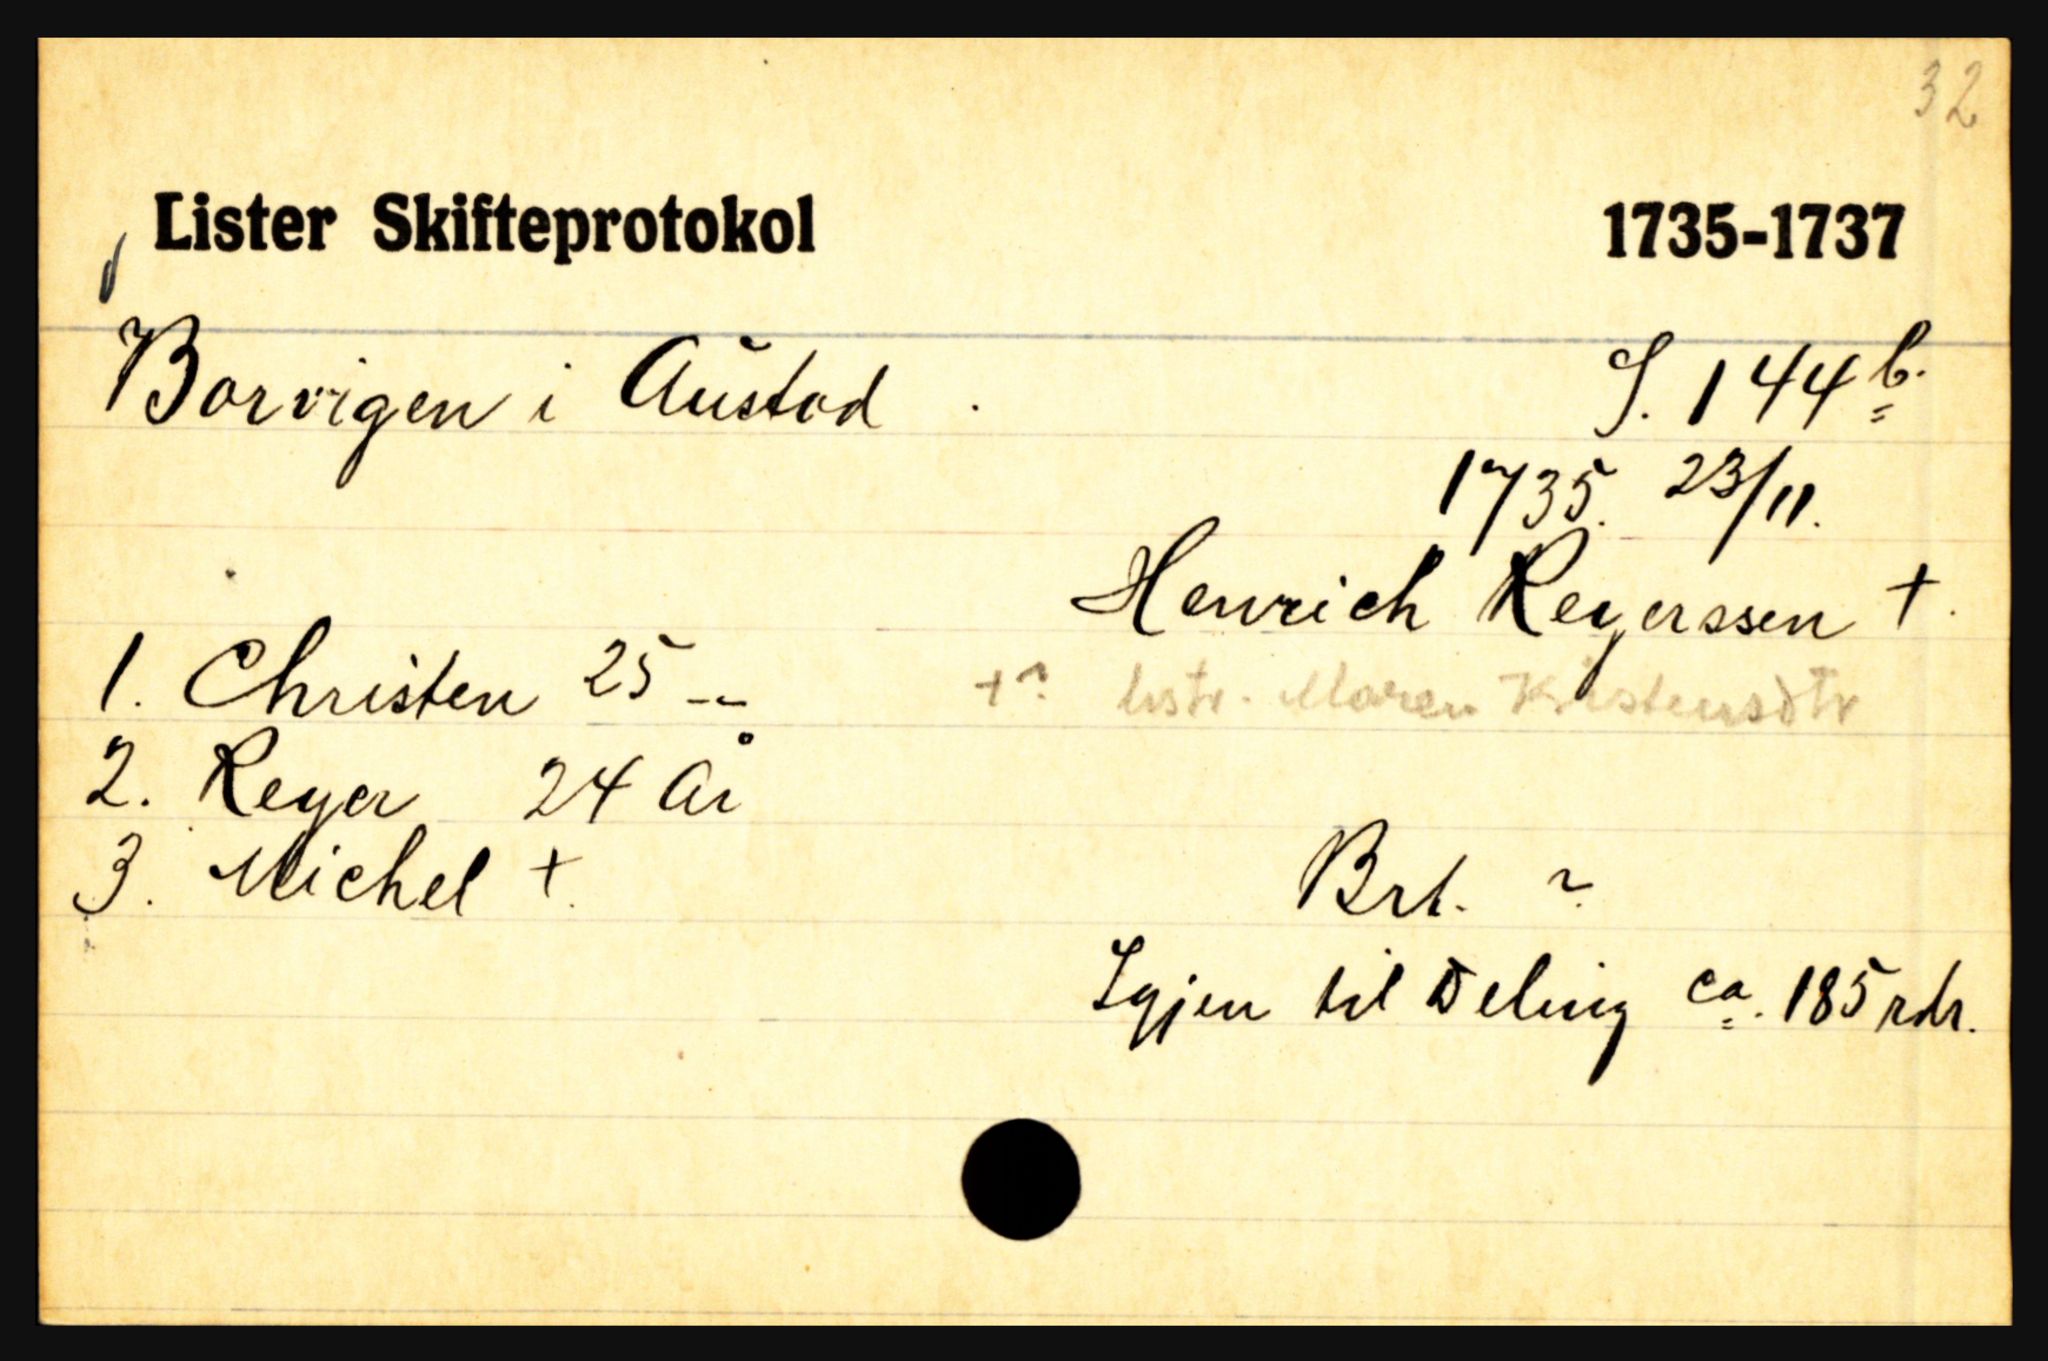 32
Lister Skifteprotokol 1735-1737
Borvigen i Austad . S. 144 b.
1735. 23/11.
Henrich Reyerssen +.
1. Christen 25 –– +? hstr. Maren Kirstensdtr
2. Reyer 24 år
3. Michel +. Brt. ?
Igjen til Deling ca. 185 rdr.